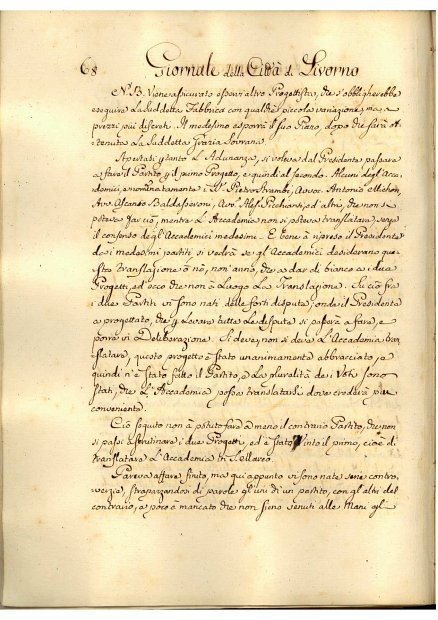 68 Giornale della Città di Livorno
N. B. Viene assicurato esservi altro Progettista, che s'obbligherebbe
eseguire la suddetta Fabbrica con qualche piccola variazione, ma a
prezzi più discreti. Il medesimo esporrà il suo Piano, dopo che sarà ot-
tenuta la suddetta Grazia Sovrana.
Apertasi l'Adunanza, si voleva dal Presidente passare
a fare il Partito p. il primo Progetto, e quindi al secondo. Alcuni degl'Acca-
demici, e nominatamente i SS.ri Pietro Strambi, Avvoc. Antonio Michon,
Avv. Ascanio Baldasseroni, Avv. Ales. Picchianti, ed altri, che non si
poteva far ciò, mentre l'Accademia non si poteva translatare senza
il consenso degl'Accademici medesimi. E bene à ripreso il Presidente,
da i medesimi partiti si vedrà se gl'Accademici desiderano que-
sta translazione ò nò, non'anno, che a dar di bianco a i due
Progetti, ed ecco che non à luogo la Translazione. Su ciò fra
i due Partiti vi sono nati delle forti dispute; onde il Presidente
à progettato, che p. levare tutte le dispute si passerà a fare, e
porre in Deliberazione. Se deve, non si deve l'Accademia tran-
slatare, questo progetto è stato unanimamente abbracciato, e
quindi n'è stato fatto il Partito, e la pluralità de i Voti sono
stati, che l'Accademia possa translatarsi dove crederà più
conveniente.
Ciò seguito non à potuto fare a meno il contrario Partito, che non
si passi à scrutinare i due Progetti, ed è stato vinto il primo, cioè di
translatare l'Accademia in S. Marco.
Pareva affare finito, ma qui appunto vi sono nate serie contro-
versie, strapazzandosi di parole gl'uni di un partito, con gl'altri del
contrario, e poco è mancato che non sieno venuti alle Mani gl'